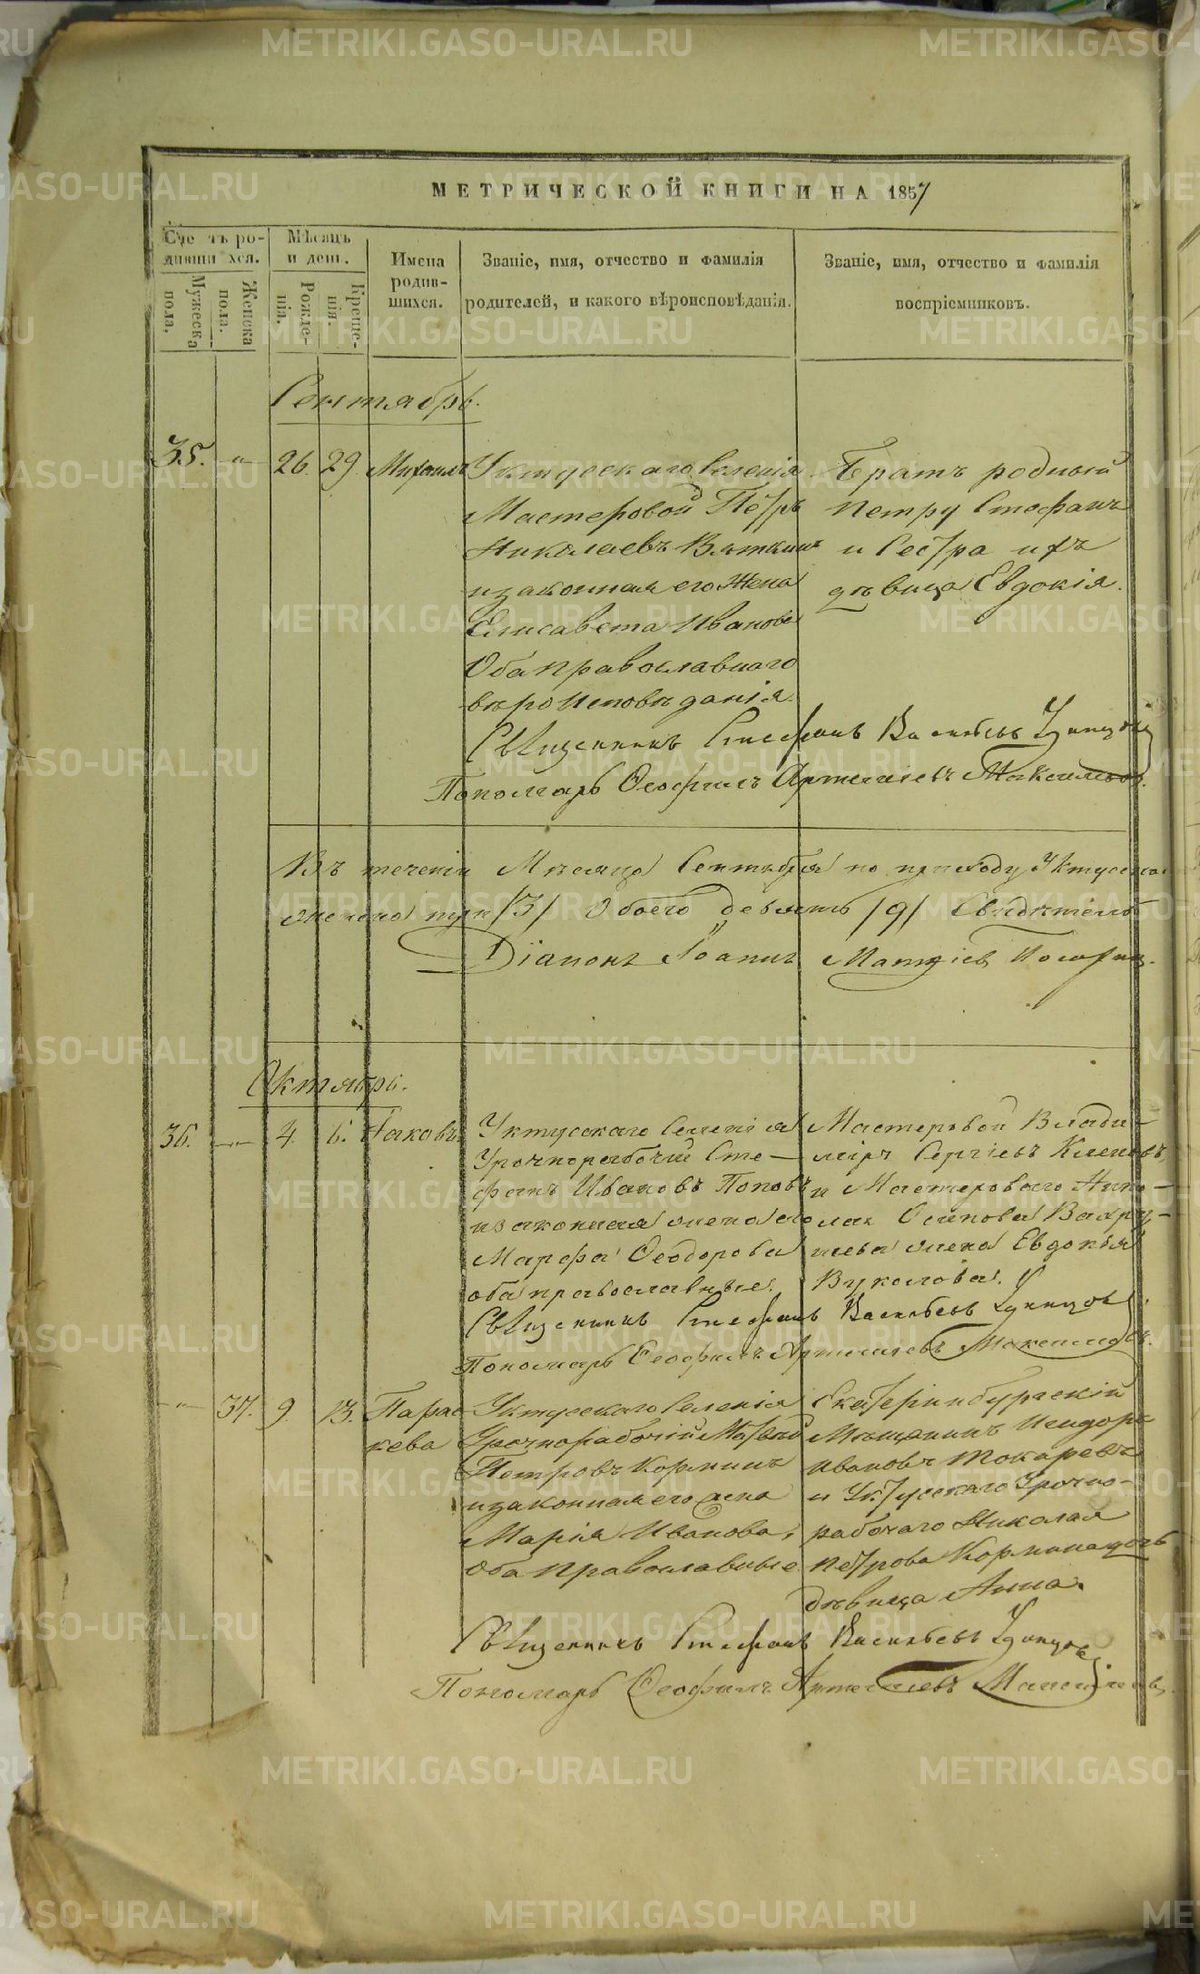 МЕТРИЧЕСКОЙ КНИГИ НА 1857
Счетъ родившихся.
Мужеска пола.
Женска пола.
Мѣсяцъ и день.
Рожденія.
Крещенія.
Имена родившихся.
Званіе, имя, отчество и фамилія
родителей, и какого вѣроисповѣданія.
Званіе, имя, отчество и фамилія
воспріемниковъ.
Сентябрь.
35. " 26 29 Михаилъ
Уктусскаго селенія
Мастеровой Петръ
Николаевъ Вяткинъ
и законная его жена
Елисавета Иванова
Оба православнаго
вѣроисповѣданія.
Братъ родный
Петру Стефанъ
и Сестра ихъ
дѣвица Евдокія.
Священникъ Стефанъ Васильевъ
Пономарь Ѳеофилъ Артемьевъ
Въ теченіи Мѣсяца Сентября по приходу
три /3/ Обоего девять /9/
Діаконъ Іоаннъ
Октябрь.
36. " 4. 6. Іаковъ
Уктусскаго селенія
Урочнорабочій Сте-
фанъ Ивановъ Поповъ
и законная жена его
Марфа Ѳеодорова
оба православные.
Мастеровой Влади-
міръ Сергіевъ
и Мастероваго Нико-
лая Осипова Вахру-
шева жена Евдокія
Вуколова.
Священникъ Стефанъ Васильевъ
Пономарь Ѳеофилъ Артемьевъ
" 37. 9. 13. Парас
кева
Уктусскаго селенія
Урочнорабочій Матвей
Петровъ Корминъ
и законная его жена
Марія Иванова,
Оба Православные
Екатеринбургскій
Мѣщанинъ Исидоръ
Ивановъ Токаревъ
и Уктусскаго Урочно-
рабочаго Николая
Петрова Кормина дочь
дѣвица Анна.
Священникъ Стефанъ Васильевъ
Пономарь Ѳеофилъ Артемьевъ
METRIKI.GASO-URAL.RU